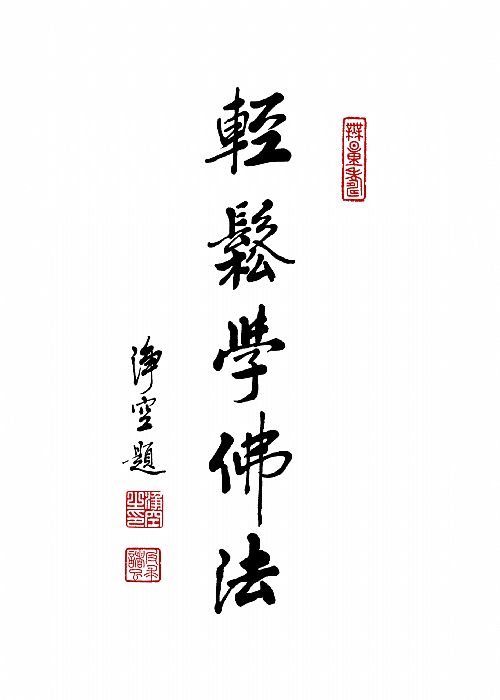 輕鬆學佛法
淨空題